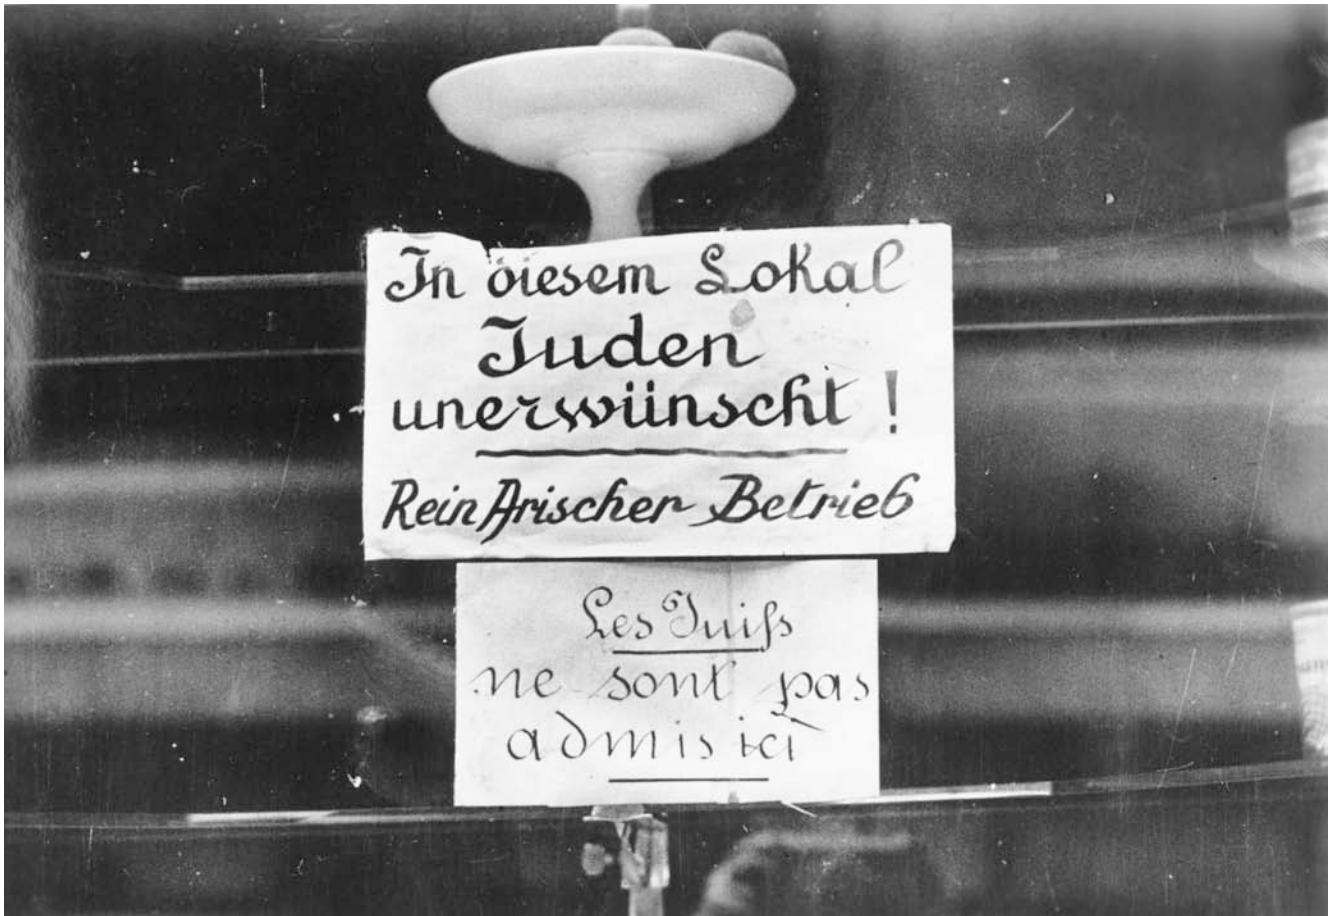 In diesem Lokal
Juden
unerwünscht !
Rein Arischer Betrieb
Les Juifs
ne sont pas
admis ici